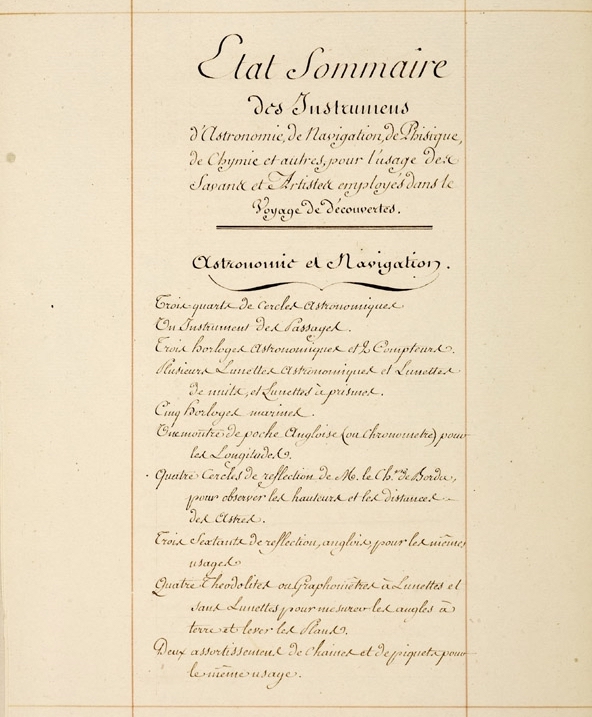 Etat Sommaire
des Instrumens
d'Astronomie, de Navigation, de Phisique,
de Chymie et autres, pour l'usage des
Savans et Artistes employés dans le
Voyage de découvertes.
Astronomie et Navigation.
Trois quarts de Cercles Astronomiques
Un Instrument des Passages.
Trois horloges Astronomiques et 2 Compteurs.
Plusieurs Lunettes Astronomiques et Lunettes
de nuits, et Lunettes à prismes.
Cinq horloges marines.
Une montre de poche Angloise (ou Chronometre) pour
les Longitudes.
Quatre Cercles de reflection de M. le Ch.er de Borda,
pour observer les hauteurs et les distances
des Astres.
Trois Sextants de reflection, anglois, pour les mêmes
usages
Quatre Theodolites ou Graphomètres à Lunettes et
sans Lunettes pour mesurer les angles à
terre et lever les Plans.
Deux assortissemens de Chaines et de piquets pour
le même usage.